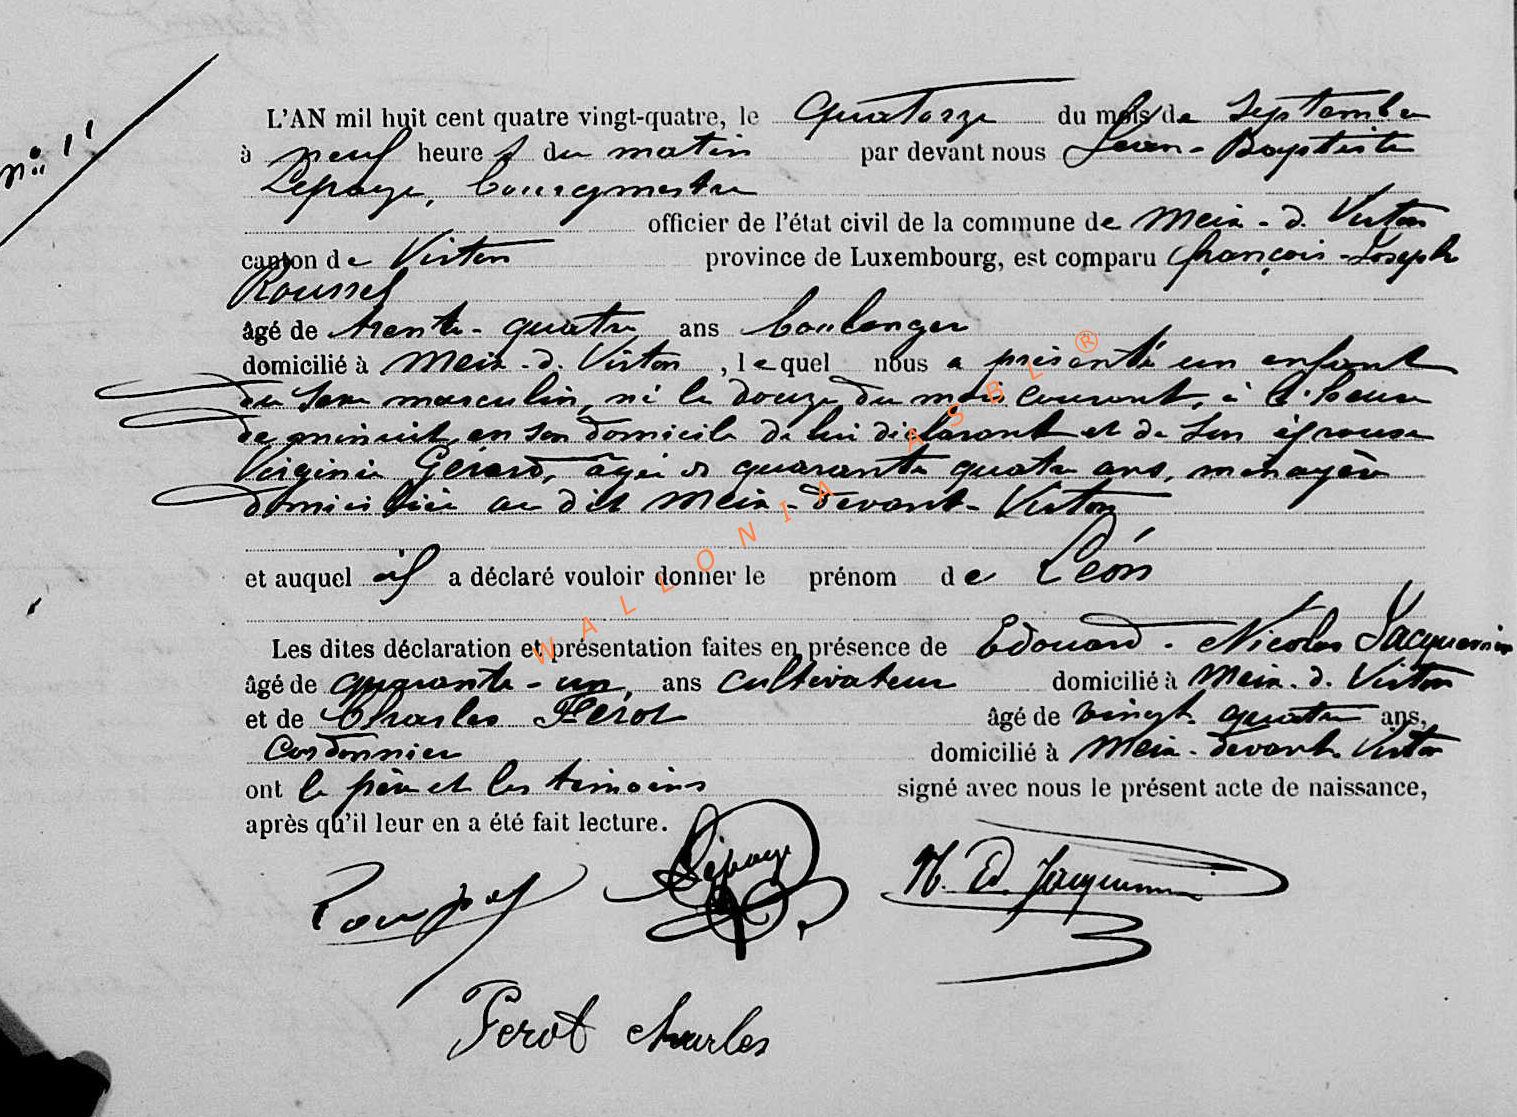 n° 11
L'AN mil huit cent quatre vingt-quatre, le quatorze du mois de septembre
à neuf heures du matin par devant nous Jean-Baptiste
Lepage, bourgmestre
officier de l'état civil de la commune de Meix-d. Virton
canton de Virton province de Luxembourg, est comparu françois-Joseph
Roussel
âgé de trente-quatre ans boulanger
domicilié à Meix-d. Virton, lequel nous a présenté un enfant
du sexe masculin, né le douze du mois courant, à l'heure
de minuit, en son domicile de lui déclarant et de son épouse
Virginie Gérard, âgée de quarante quatre ans, ménagère
domiciliée au dit Meix-devant-Virton
et auquel il a déclaré vouloir donner le prénom de Léon
Les dites déclaration et présentation faites en présence de Edouard-Nicolas Jacquemin
âgé de quarante-un, ans cultivateur domicilié à Meix-d. Virton
et de Charles Ferot âgé de vingt-quatre ans,
cordonnier domicilié à Meix-devant-Virton
ont le père et les témoins signé avec nous le présent acte de naissance,
après qu'il leur en a été fait lecture.
Roussel Lepage N. Ed. Jacquemin
Ferot charles
WALLONIA ASBL ®